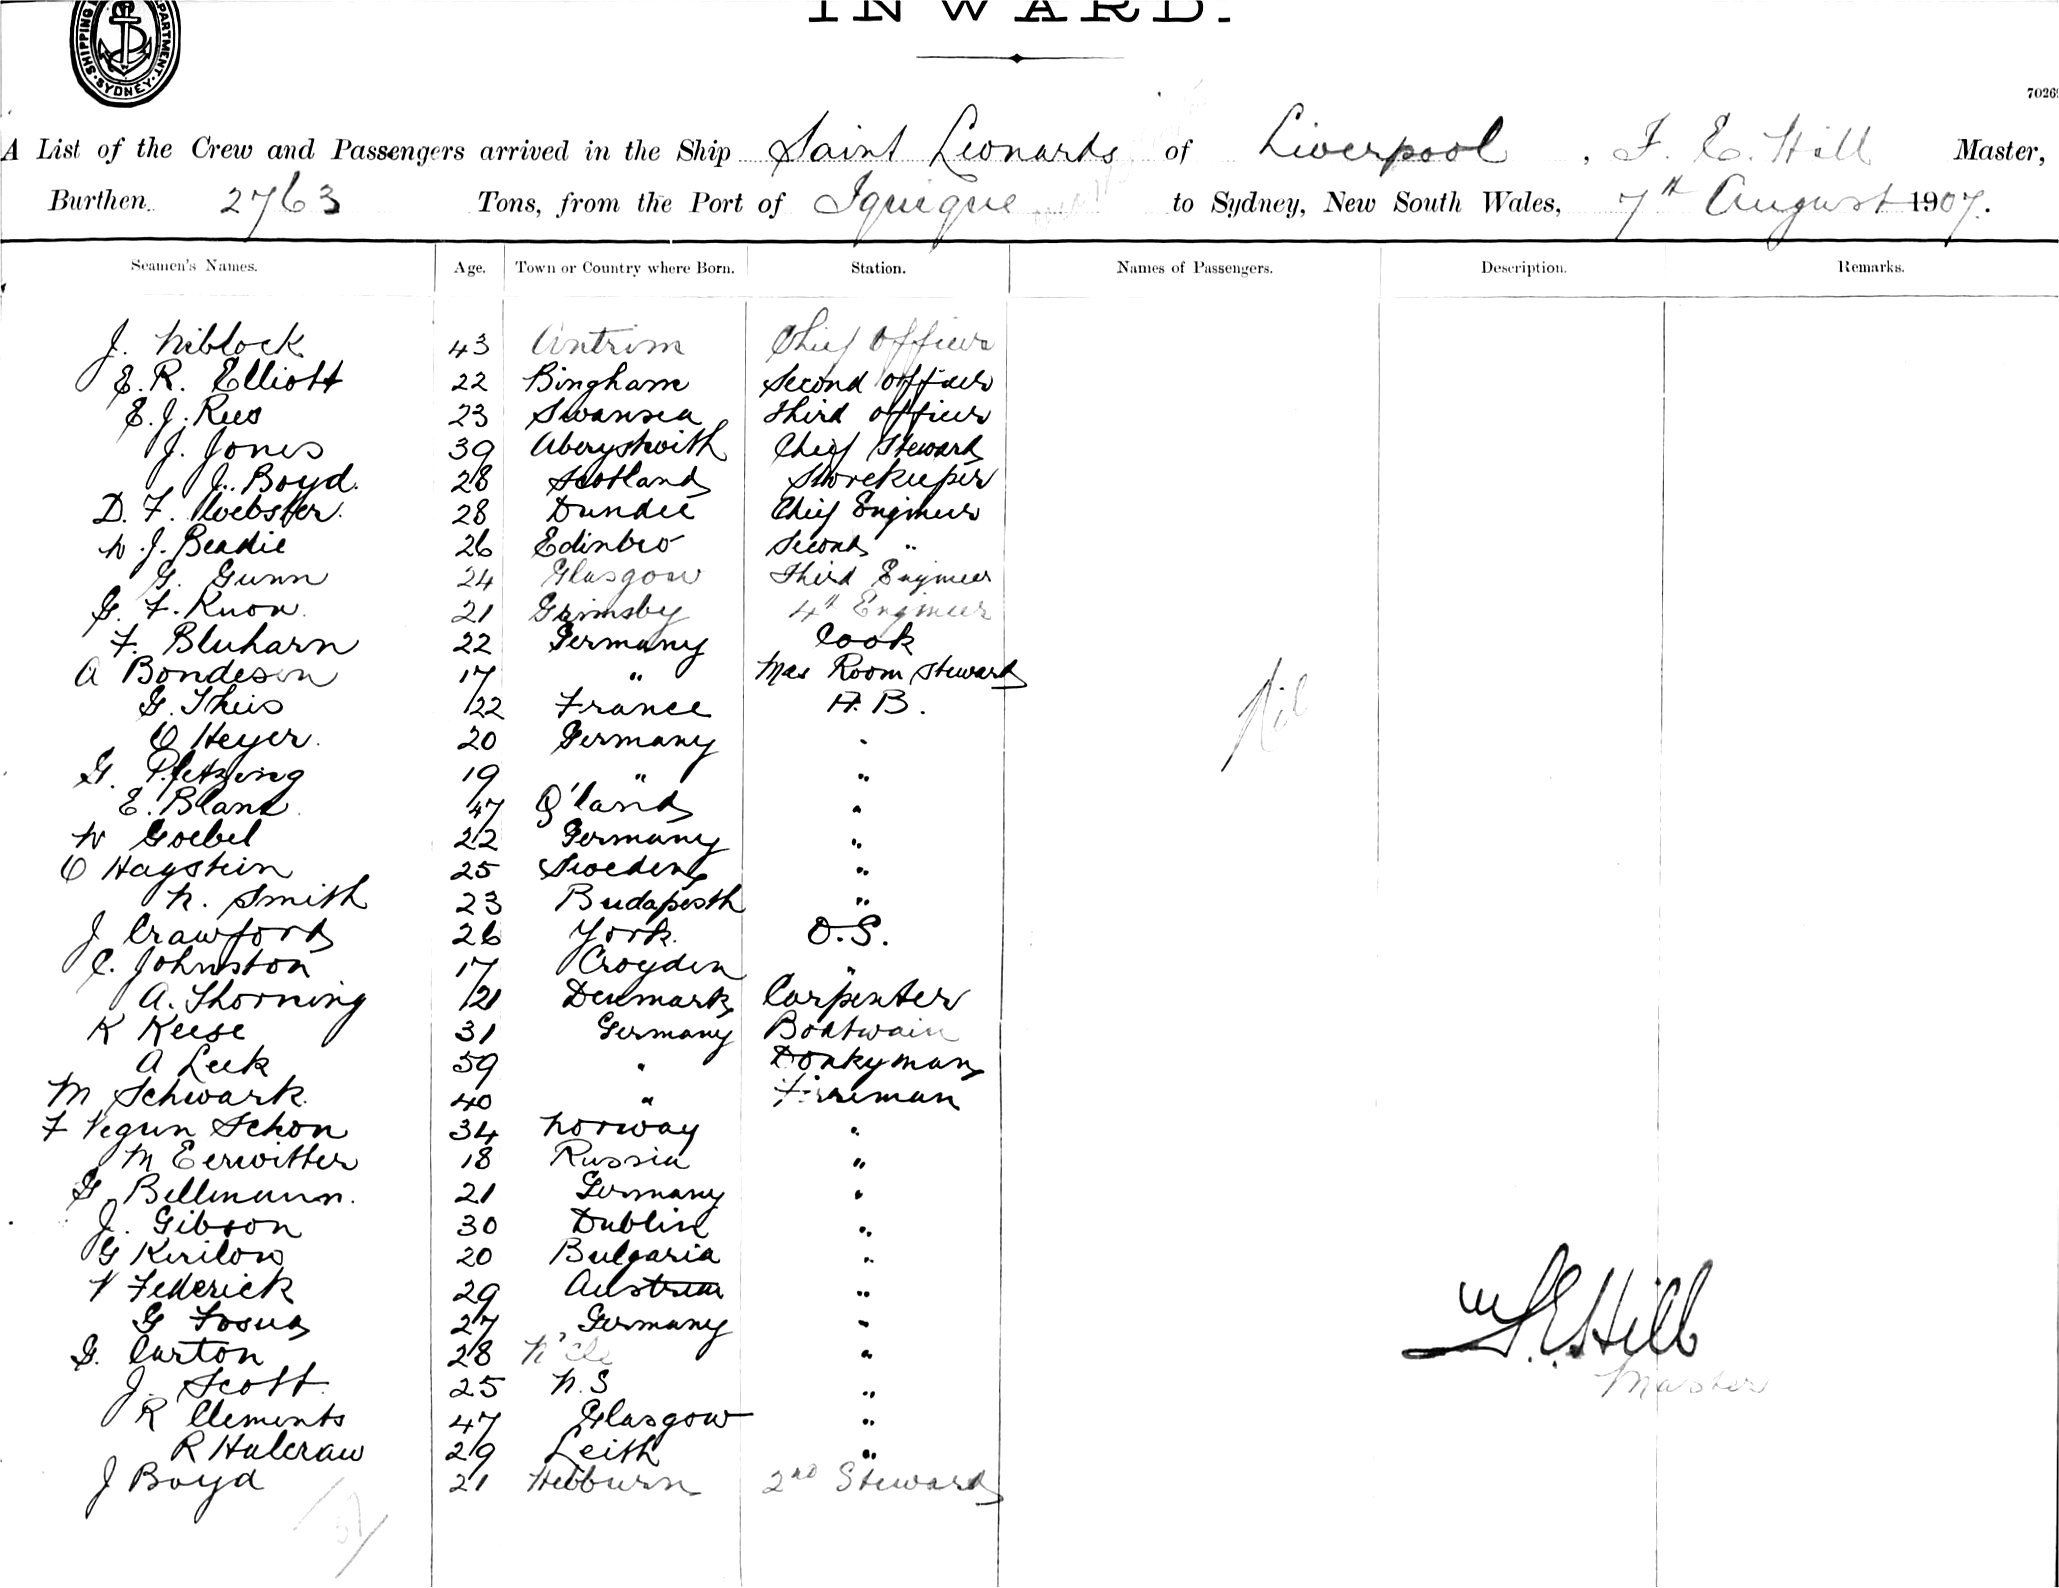 INWARD.
SHIPPING DEPARTMENT. SYDNEY
7026
A List of the Crew and Passengers arrived in the Ship Saint Leonards of Liverpool, F. E. Hill Master,
Burthen 2763 Tons, from the Port of Iquique to Sydney, New South Wales, 7th August 1907.
Seamen's Names. Age. Town or Country where Born. Station. Names of Passengers. Description. Remarks.
J. Niblock 43 Antrim Chief Officer
E. R. Elliott 22 Bingham Second Officer
E. J. Rees 23 Swansea Third Officer
J. Jones 39 Aberystwith Chief Steward
J. Boyd. 28 Scotland Storekeeper
D. F. Webster. 28 Dundee Chief Engineer
W. J. Beadie 26 Edinbro Second "
G. Gunn 24 Glasgow Third Engineer
G. F. Knox. 21 Grimsby 4th Engineer
F. Bluharn 22 Germany Cook
A Bondeson 17 " Mes Room Steward
G. Theis 22 France A. B.
Nil
O Heyer. 20 Germany "
G. Pfetzing 19 " "
E. Blane. 47 Q'land "
W Goebel 22 Germany "
O Hagstein 25 Sweden "
N. Smith 23 Budapesth "
J Crawford 26 York. O. S.
C. Johnston 17 Croyden "
A. Thorning 21 Denmark Carpenter
K Keese 31 Germany Boatwain
A Leek 59 " Donkyman
M Schwark. 40 " Fireman
F Vegun Schon 34 Norway "
M Eerwitter 18 Russia "
G Bellmann. 21 Germany "
J. Gibson 30 Dublin "
G Kirilow 20 Bulgaria "
V Federick 29 Austria "
G Fosua 27 Germany "
G. Curton 28 N'cle "
F. E. Hill
Master
J. Scott. 25 N. S "
R Clements 47 Glasgow "
R Halcraw 29 Leith "
J Boyd 21 Hebburn 2nd Steward